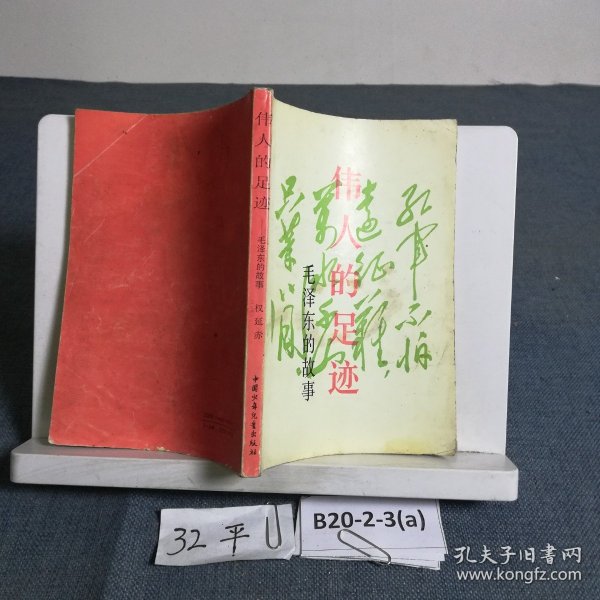 伟人的足迹
毛泽东的故事
权延赤
中国少年儿童出版社
伟人的足迹
毛泽东的故事
红军不怕
远征难，
万水千山
只等闲
32平
B20-2-3(a)
孔夫子旧书网
www.kongfz.com